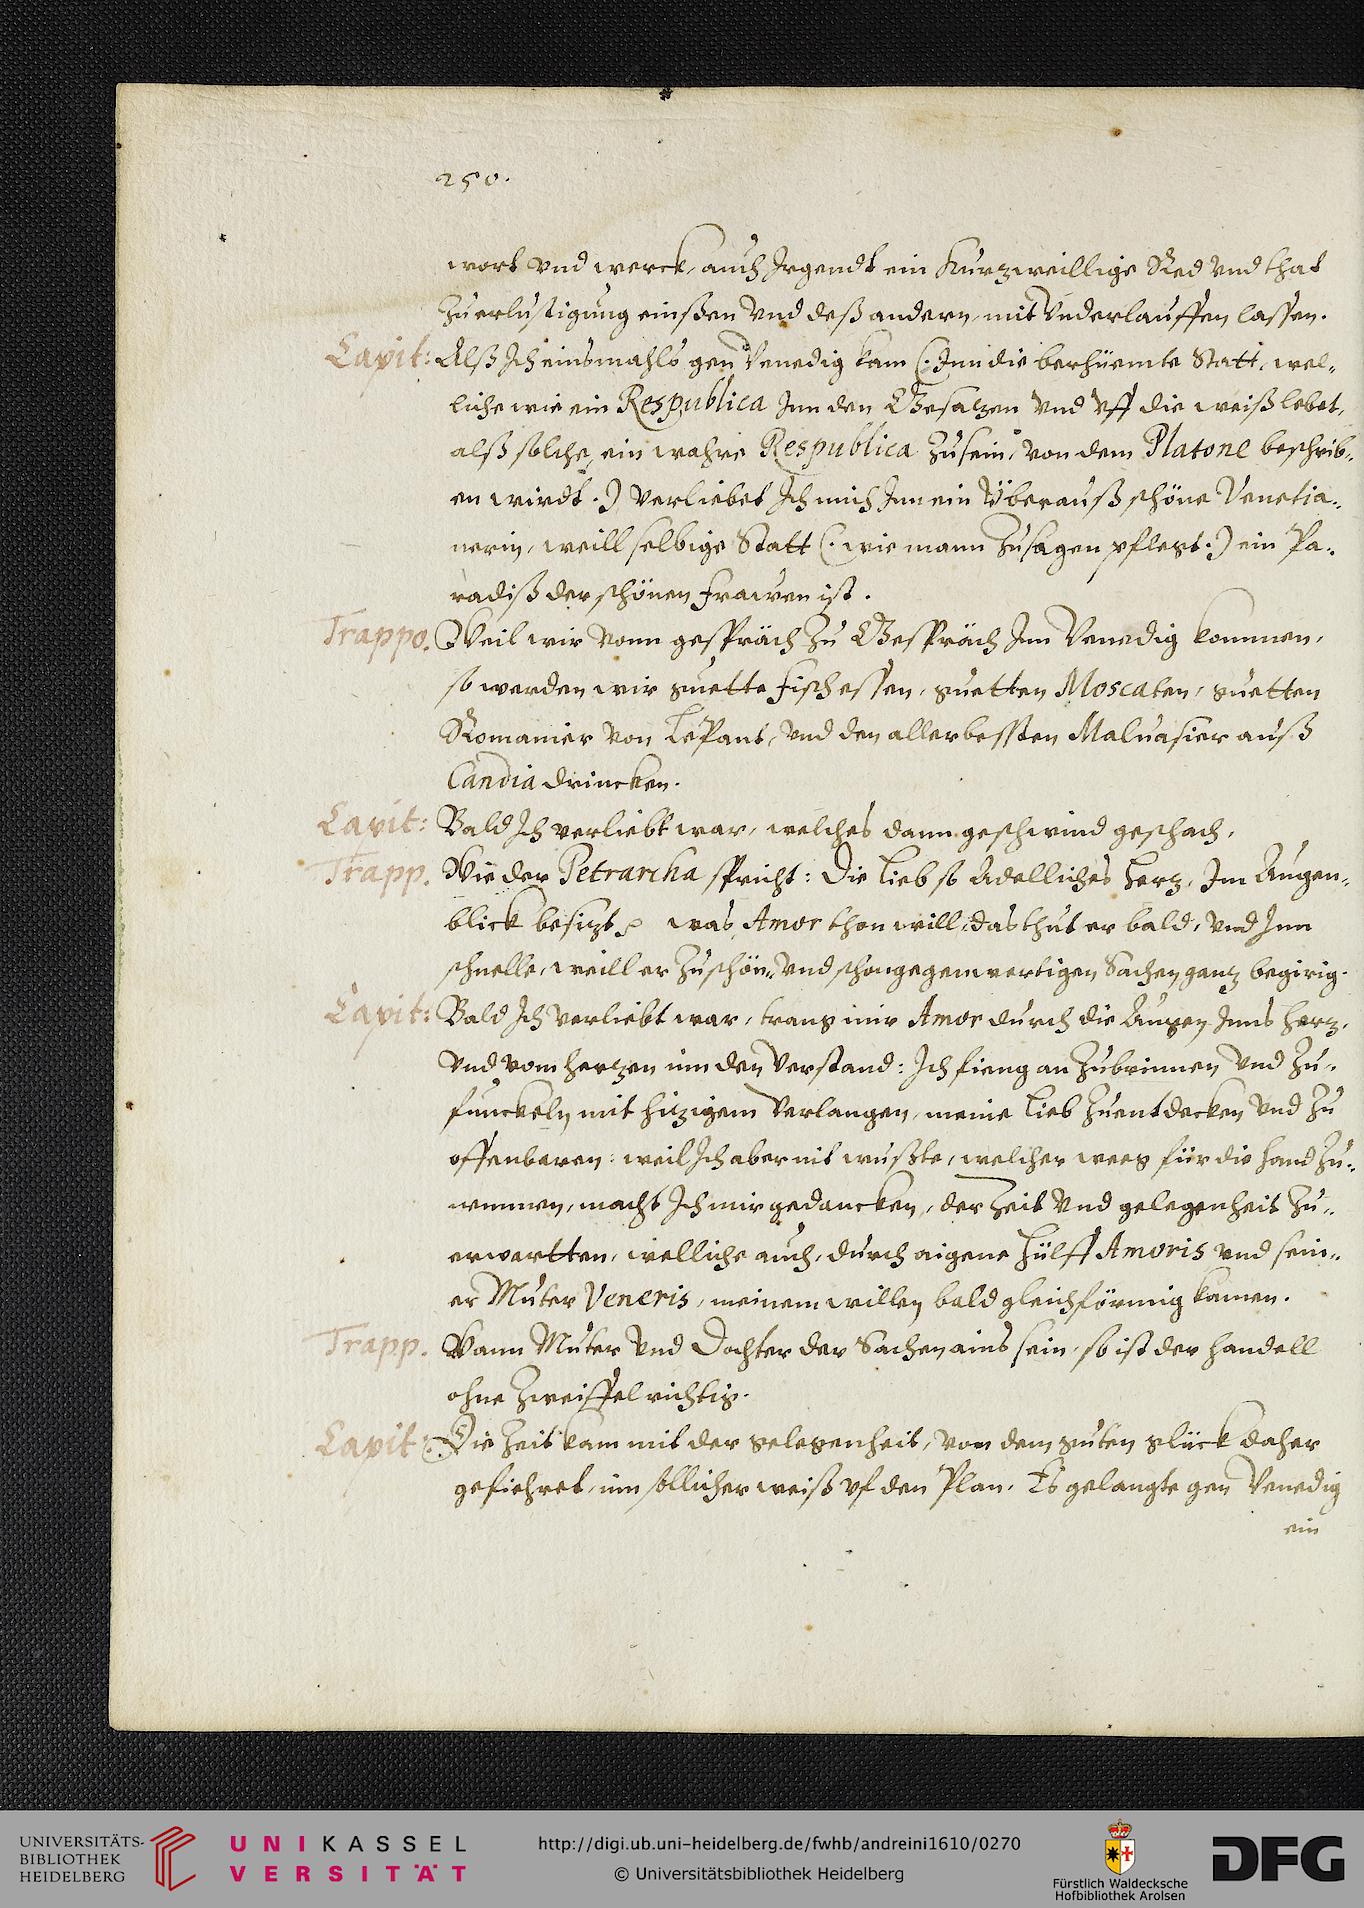 250.
wort vnd werck, auch Irgendt ein Kurzweillige Red vnd that
Zuerlustigung einßen vnd deß andern, mit vnderlauffen lassen.
Capit: Alß Ich einsmahls gen Venedig kam (: Inn die berhüemte Statt, wel„
liche wie ein Respublica Inn den Gesatzen vnd vff die weiß lebet,
alß solche, ein wahre Respublica Zusein, von dem Platone beschrib„
en wirdt :) verliebet Ich mich Inn ein Überauß schöne Venetia„
nerin, weill selbige Statt (: wie mann Zusagen pflegt :) ein Pa„
radiß der schönen Frawen ist.
Trappo. Weil wir vonn gespräch Zu Gespräch Inn Venedig kommen,
so werden wir guette Fisch essen, guetten Moscaten, guetten
Romanier von LePant, vnd den allerbessten Maluasier auß
Candia drincken.
Capit: Bald Ich verliebt war, welches dann geschwind geschach,
Trapp. Wie der Petrarcha spricht: Die Lieb so Adelliches Herz, Im Augen„
blick besizt, was Amor thon will, das thut er bald, vnd Inn
schnelle, weill er Zuschön„ vnd schongegenwertigen Sachen ganz begirig.
Capit: Bald Ich verliebt war, trang mir Amor durch die Augen Inns Herz,
vnd vom herzen inn den verstand: Ich fieng an Zubrinnen vnd Zu„
funckeln mit hizigem verlangen, meine Lieb Zuentdecken vnd Zu
offenbaren: weil Ich aber nit wußte, welcher weeg für die hand Zu„
nemmen, macht Ich mir gedancken, der Zeit vnd gelegenheit Zu„
erwartten, welliche auch, durch aigene Hülff Amoris vnd sein„
er Muter Veneris, meinem willen bald gleichförmig kamen.
Trapp. Wann Muter vnd Dochter der Sachen ains sein, so ist der handell
ohne Zweiffel richtig.
Capit: Die Zeit kam mit der gelegenheit, von dem guten glück daher
gefiehret, inn sollicher weiß vf den Plan. Es gelangte gen Venedig
ein
UNIVERSITÄTS-
BIBLIOTHEK
HEIDELBERG
UNIKASSEL
VERSITÄT
http://digi.ub.uni-heidelberg.de/fwhb/andreini1610/0270
© Universitätsbibliothek Heidelberg
Fürstlich Waldecksche
Hofbibliothek Arolsen
DFG